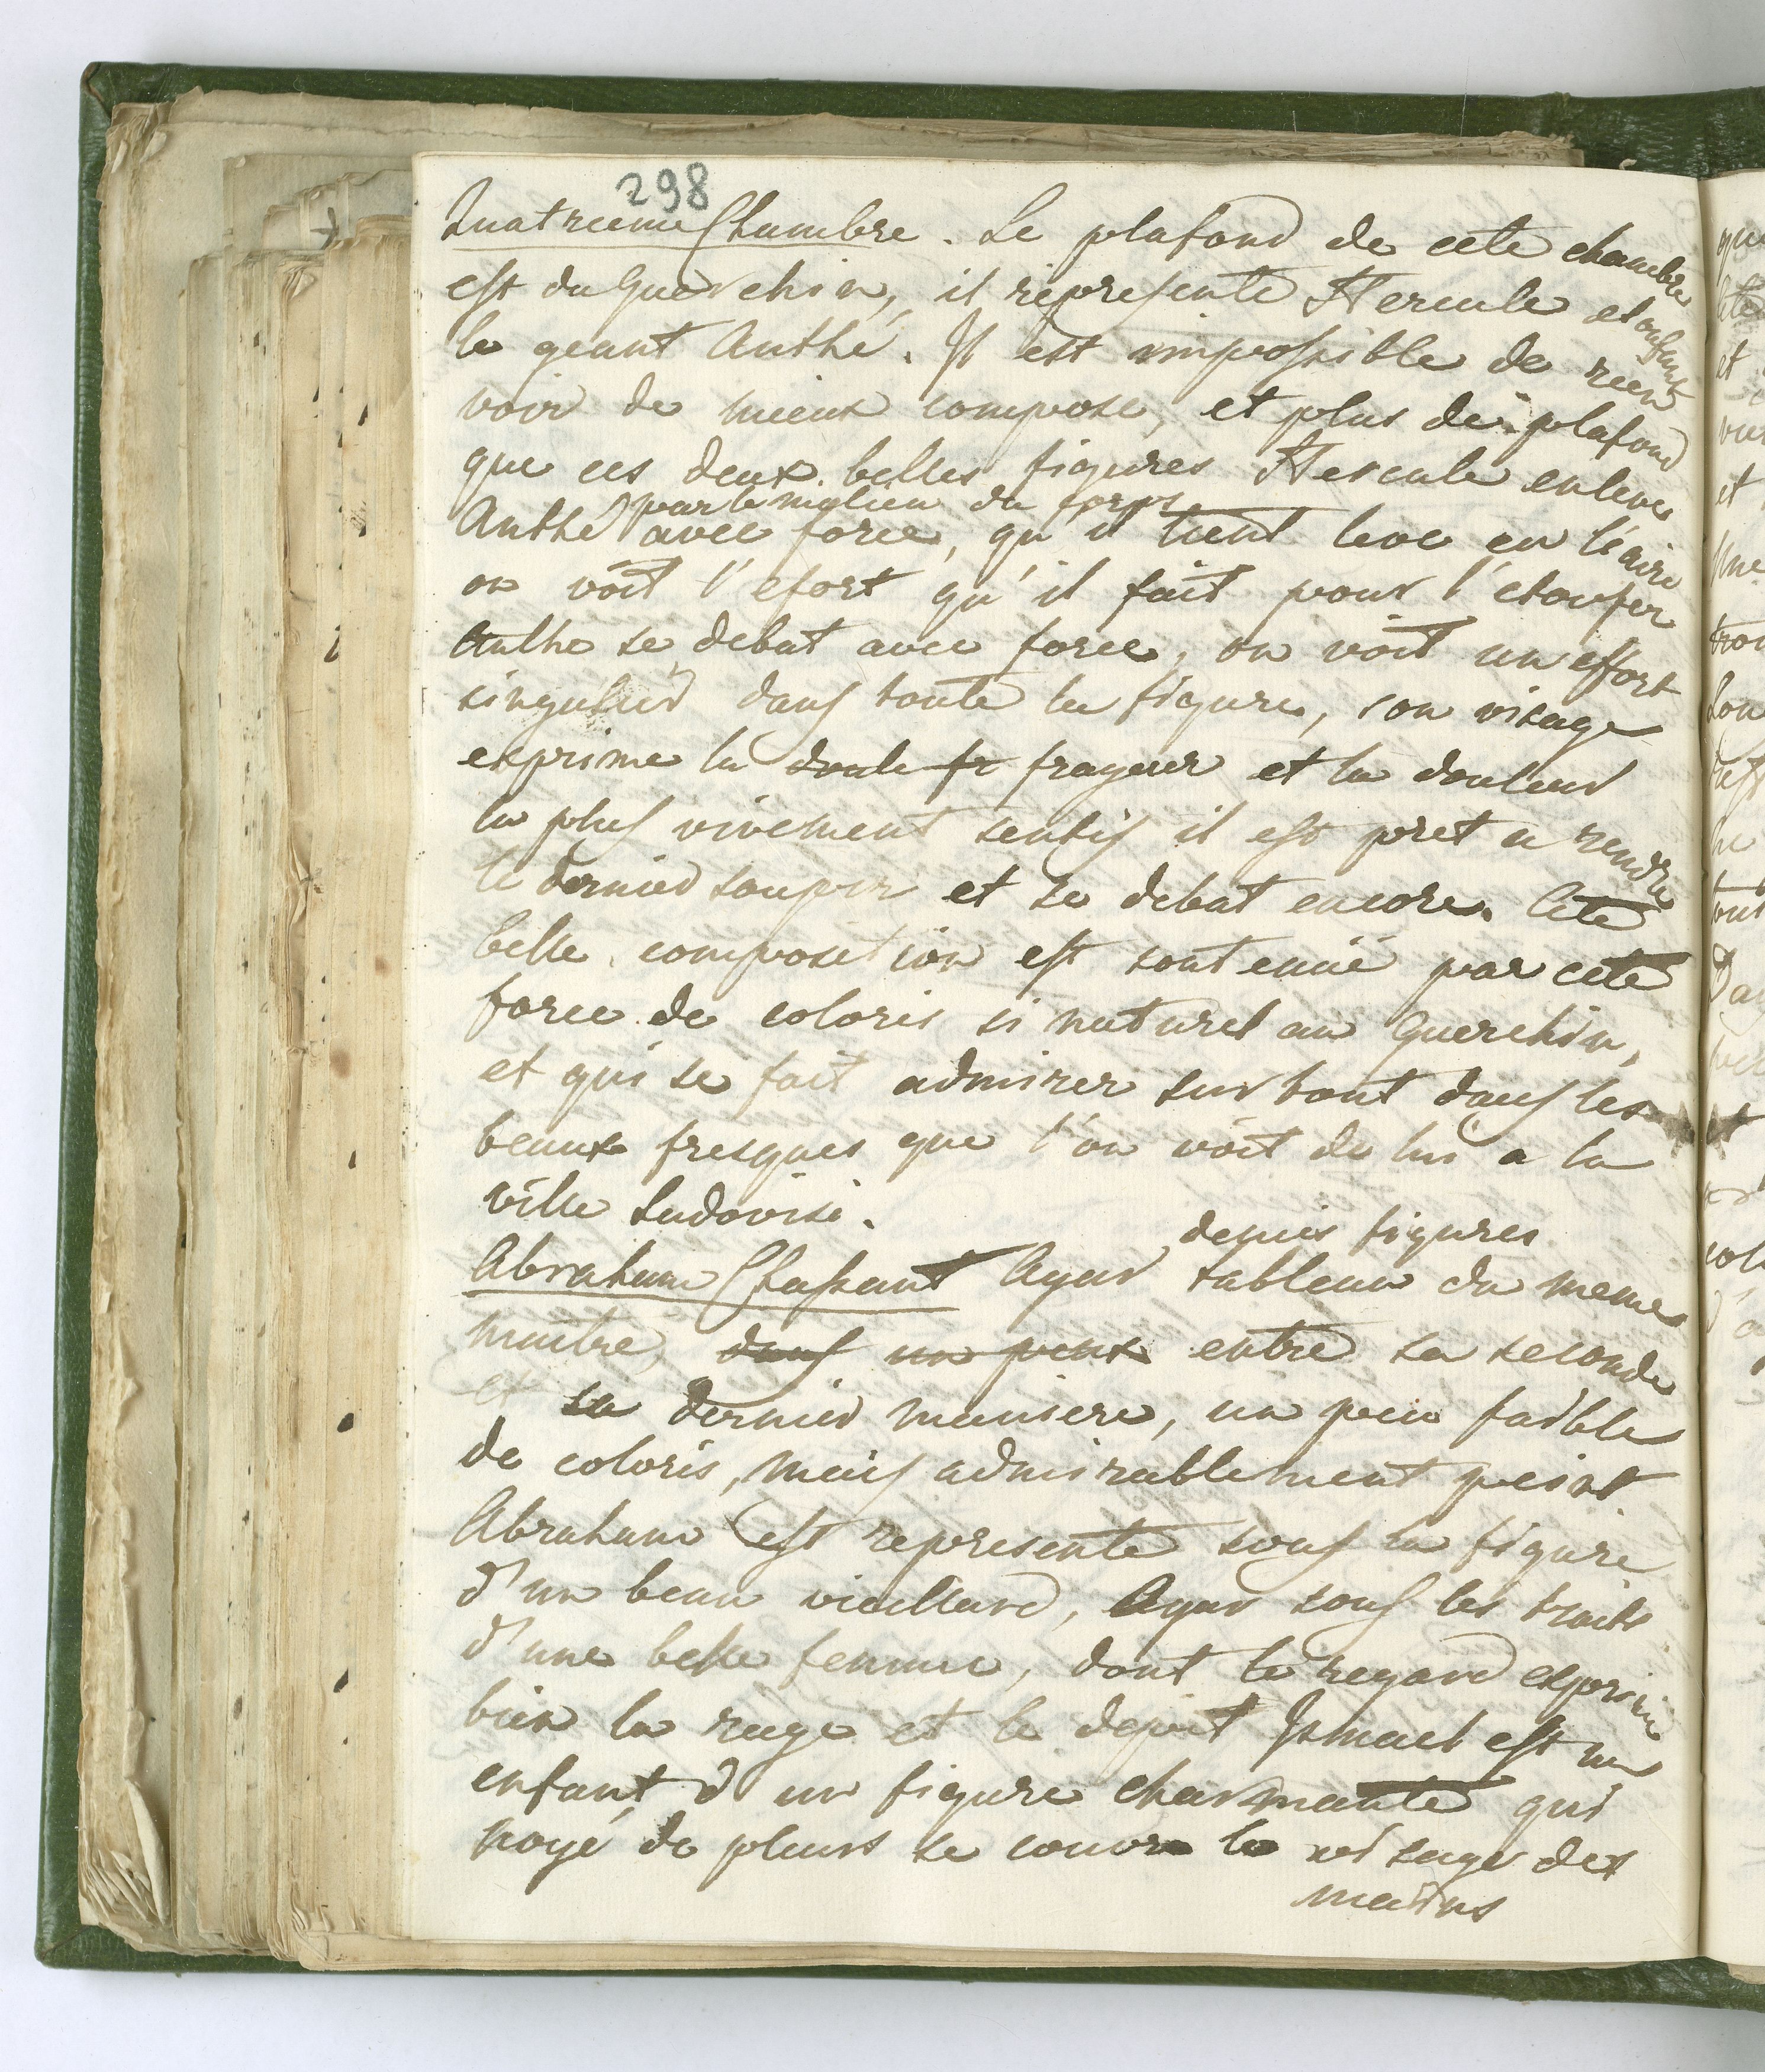 298
Quatrieme Chambre. Le plafond de cete chambre
est du Guerchin, il represente Hercule etoufant
le geant Anthé. Il est impossible de rien
voir de mieux compose, et plus de plafond
que ces deux belles figures Hercule enleve
par le milieu du corps
Anthé avec force, qu'il tient levé en l'aire
on voit l'efort qu'il fait pour l'etoufer
Anthe se debat avec force, on voit un effort
singulier dans toute la figure, son visage
exprime la doule fr frayeur et la douleur
la plus vivement sentis il est pret a rendre
le dernier soupir et se debat encore. Cete
belle composition est soutenüe par cete
force de coloris si naturel au Guerchin,
et qui se fait admirer surtout dans les
beaux fresques que l'on voit de lui a la
ville Ludovisi.
demis figures
Abraham Chassant Agar tableau du meme
maitre, dans un peux entre sa seconde
et sa dernier maniere, un peu faible
de coloris, mais admirablement peint
Abraham est represente sous la figure
d'un beau vieillard, Agar sous les traits
d'une belle femme, dont le regard exprime
bien la rage et le depit Ismael est un
enfant d'un figure charmante qui
noyé de pleurs se couvre le visage des
mains